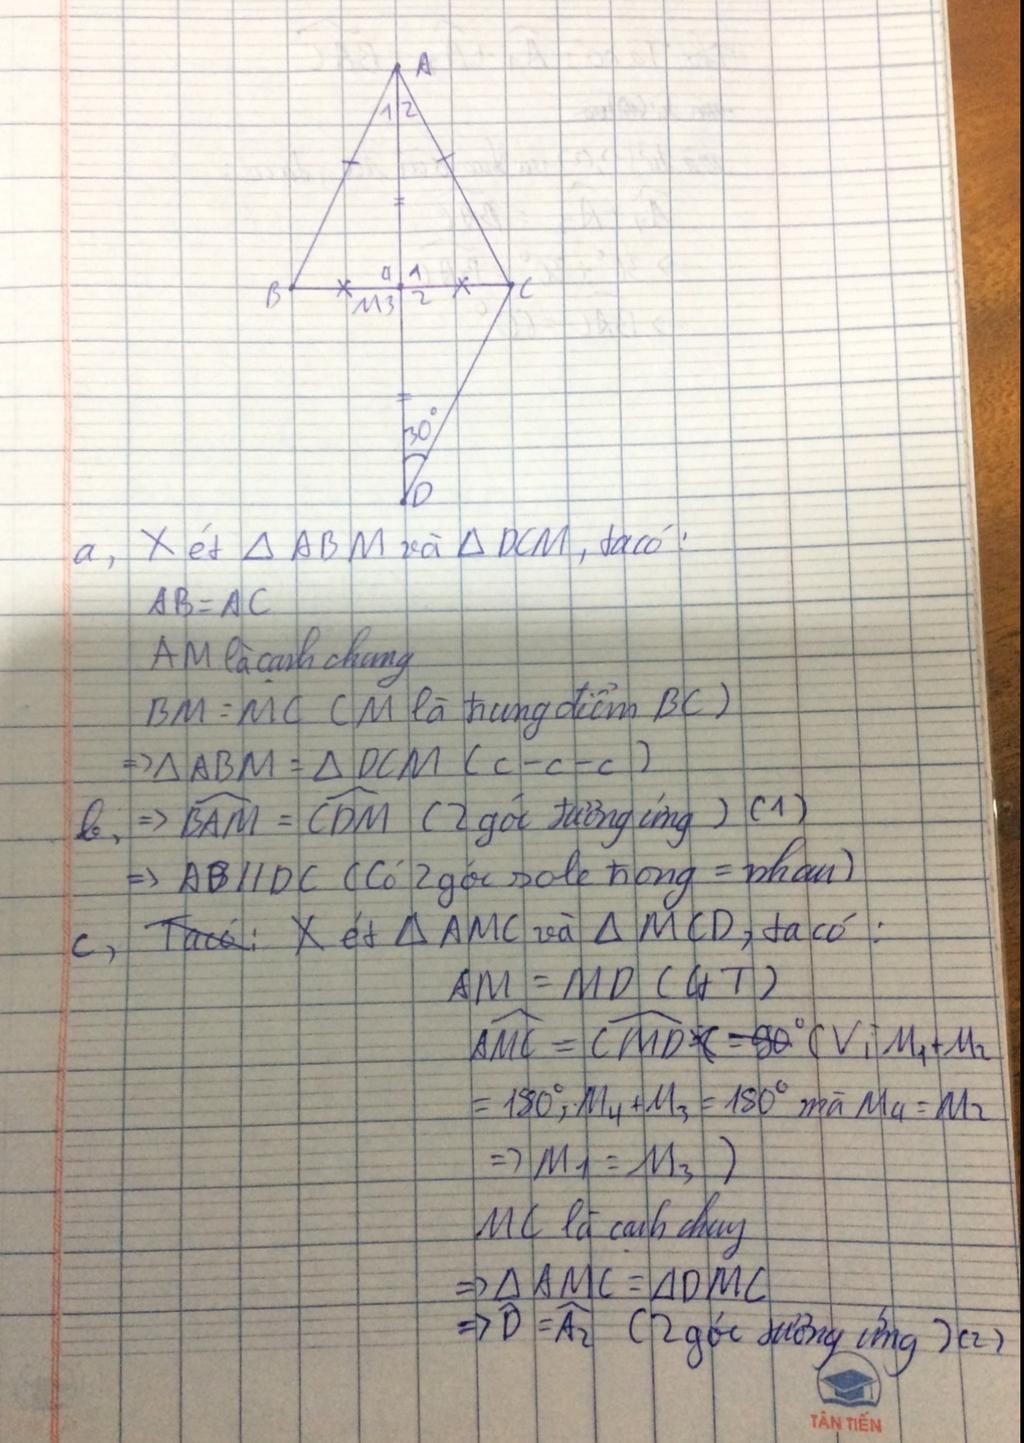 A
1 2
B
4 1
M 3 2
C
30°
D
a, Xét △ ABM và △ DCM, ta có:
AB = AC
AM là cạnh chung
BM = MC (M là trung điểm BC)
=> △ ABM = △ DCM (c-c-c)
b, => \widehat{BAM} = \widehat{CDM} (2 góc tương ứng) (1)
=> AB // DC (Có 2 góc sole trong = nhau)
c, Ta có: Xét △ AMC và △ MCD, ta có:
AM = MD (GT)
\widehat{AMC} = \widehat{CMD} = 90° (Vì M₁ + M₂
= 180°; M₄ + M₃ = 180° mà M₄ = M₂
=> M₁ = M₃)
MC là cạnh chung
=> △ AMC = △ DMC
=> \widehat{D} = \widehat{A₂} (2 góc tương ứng) (2)
TÂN TIẾN